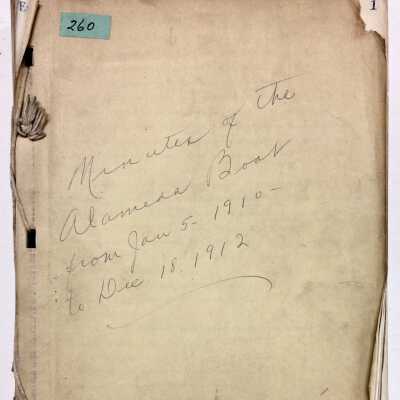 E
260
1
Minutes of the
Alameda Boat
from Jan 5 - 1910 -
to Dec 18. 1912